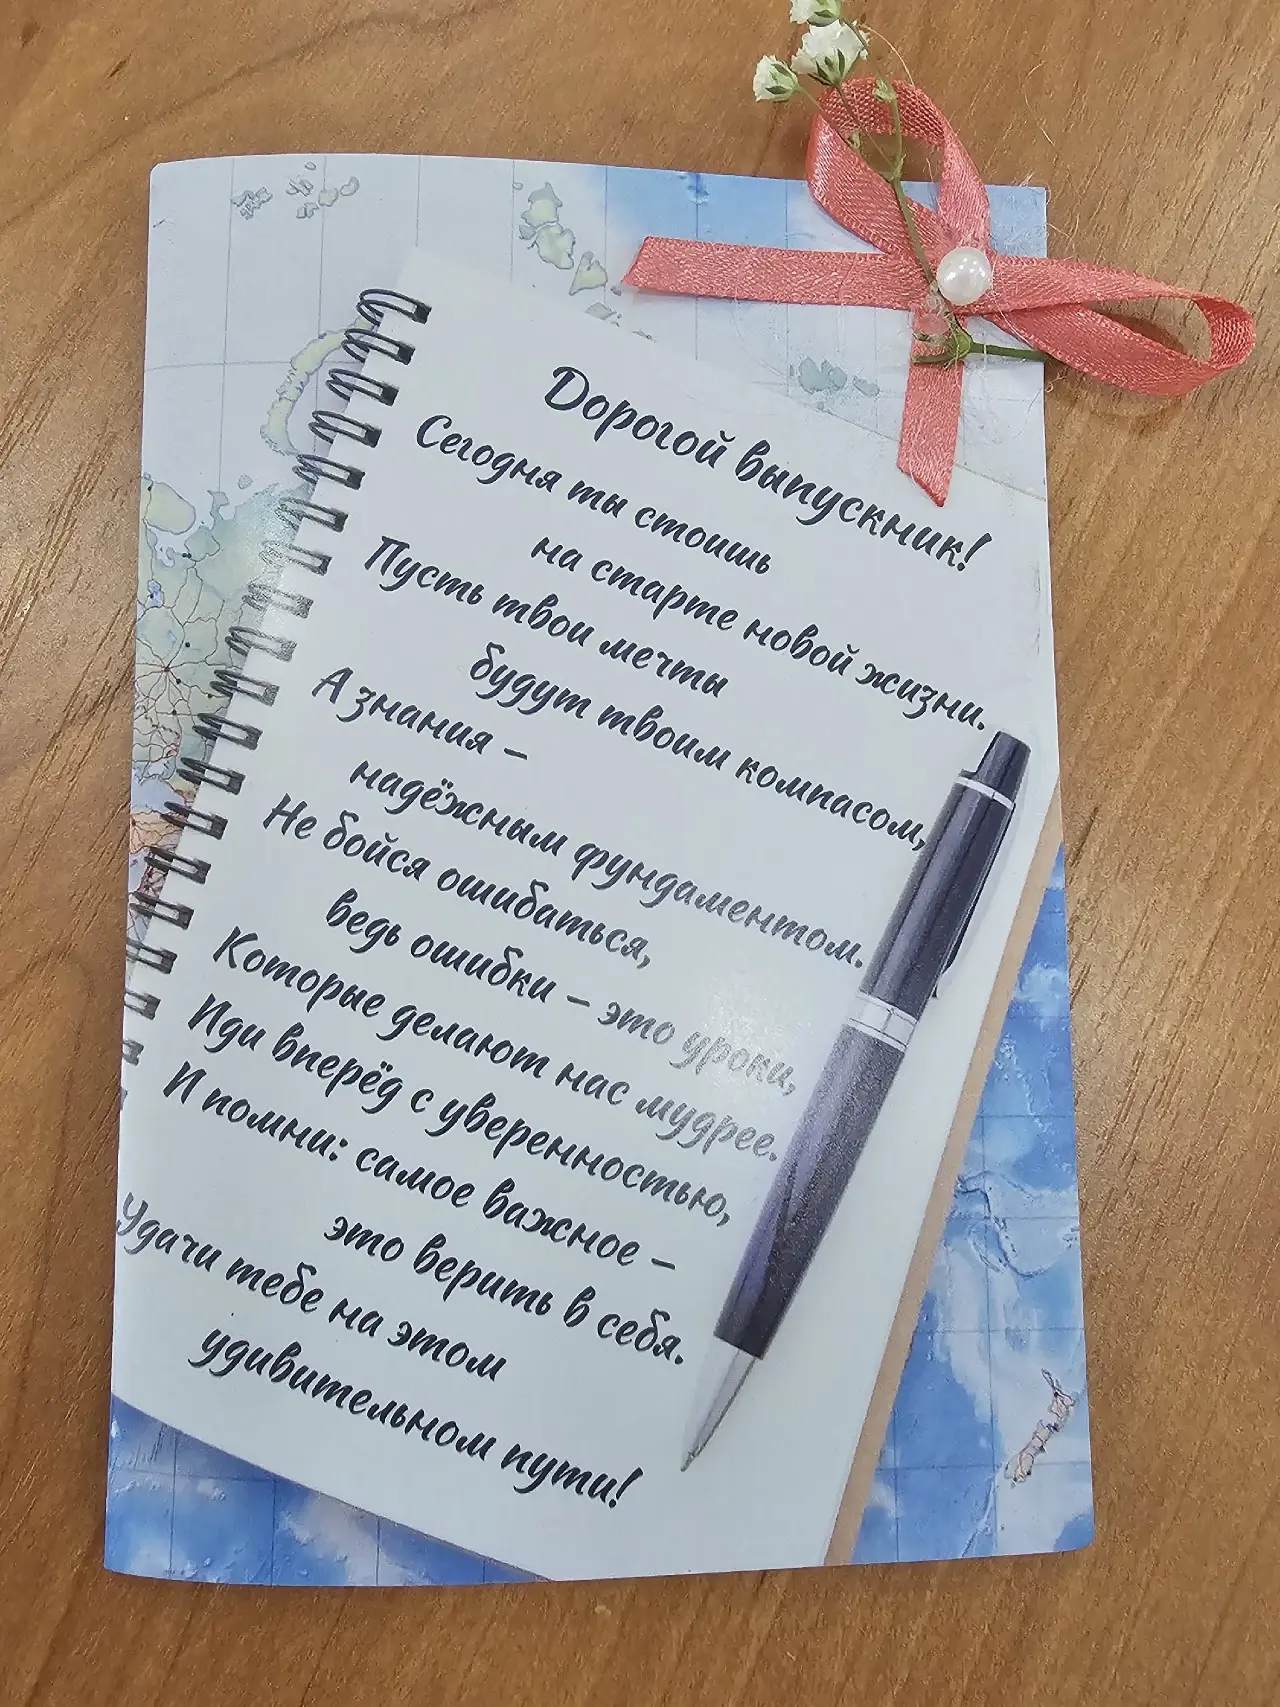 Дорогой выпускник!
Сегодня ты стоишь
на старте новой жизни.
Пусть твои мечты
будут твоим компасом,
А знания –
надёжным фундаментом.
Не бойся ошибаться,
ведь ошибки – это уроки,
Которые делают нас мудрее.
Иди вперёд с уверенностью,
И помни: самое важное –
это верить в себя.
Удачи тебе на этом
удивительном пути!